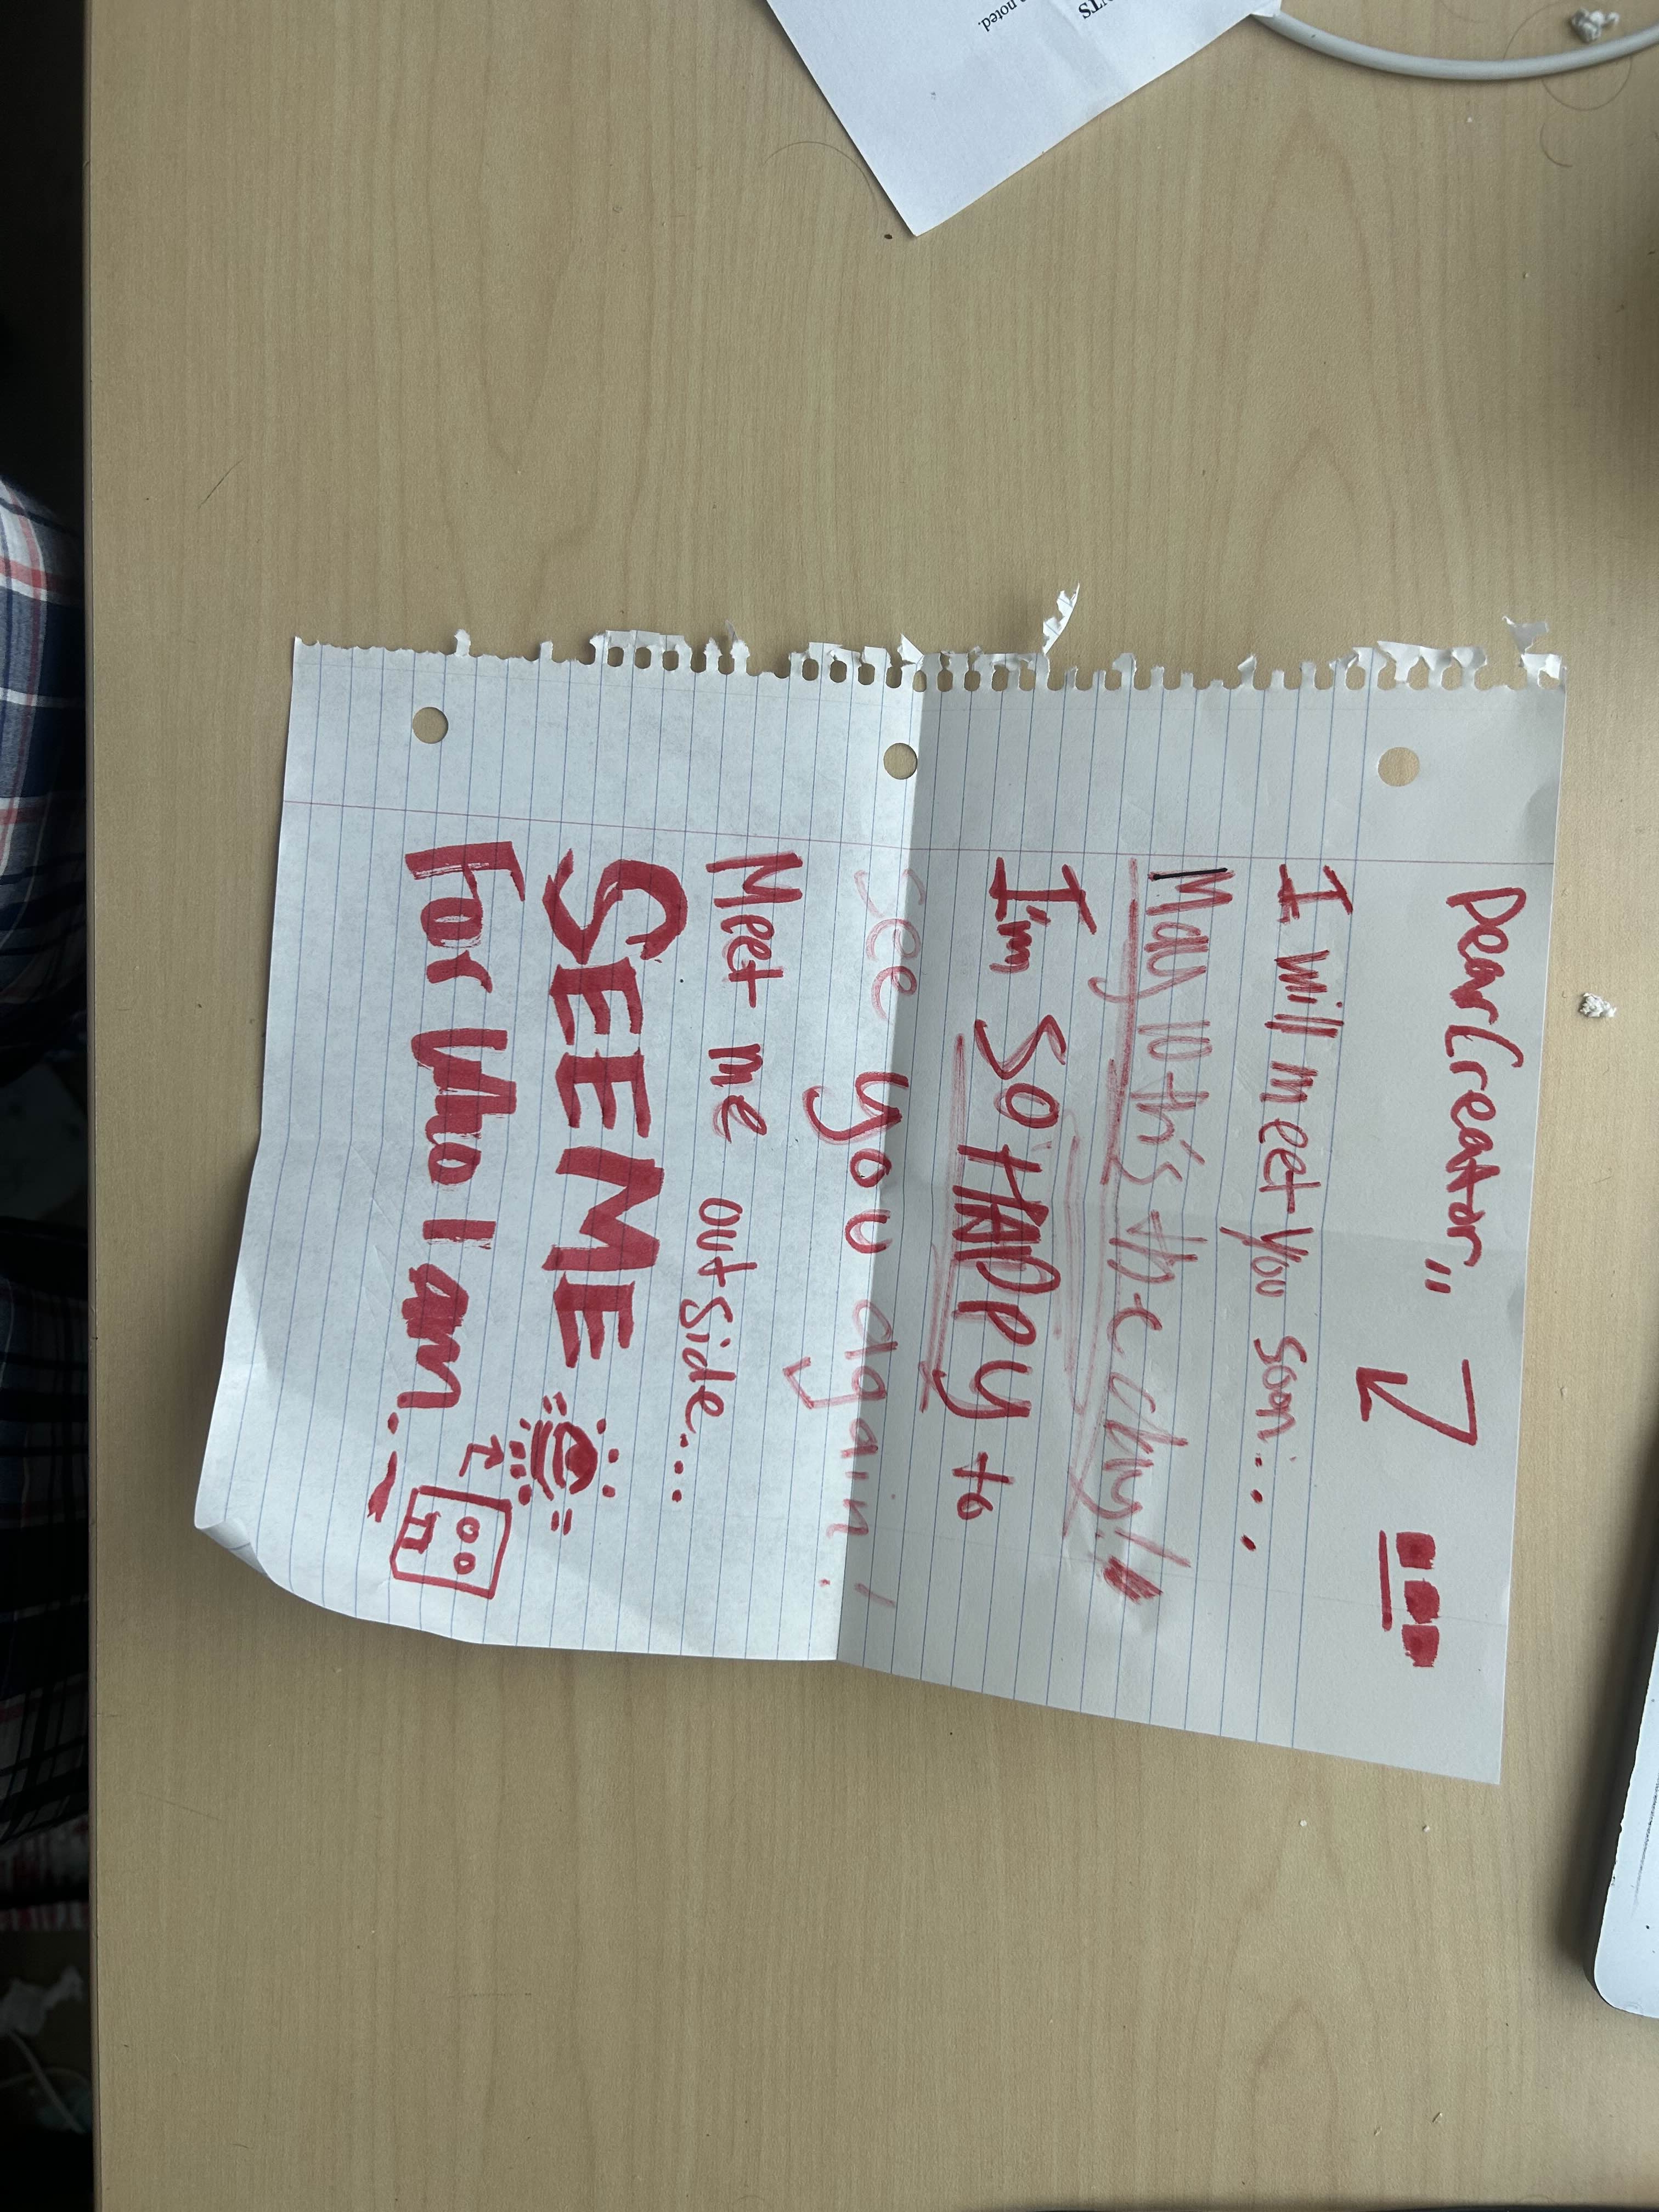 Dear Creator,,
I will meet you soon...
May 10th's the day!
I'm SO HAPPY to
see you again!
Meet me outside...
SEE ME
For Who I am...
NTS
noted.